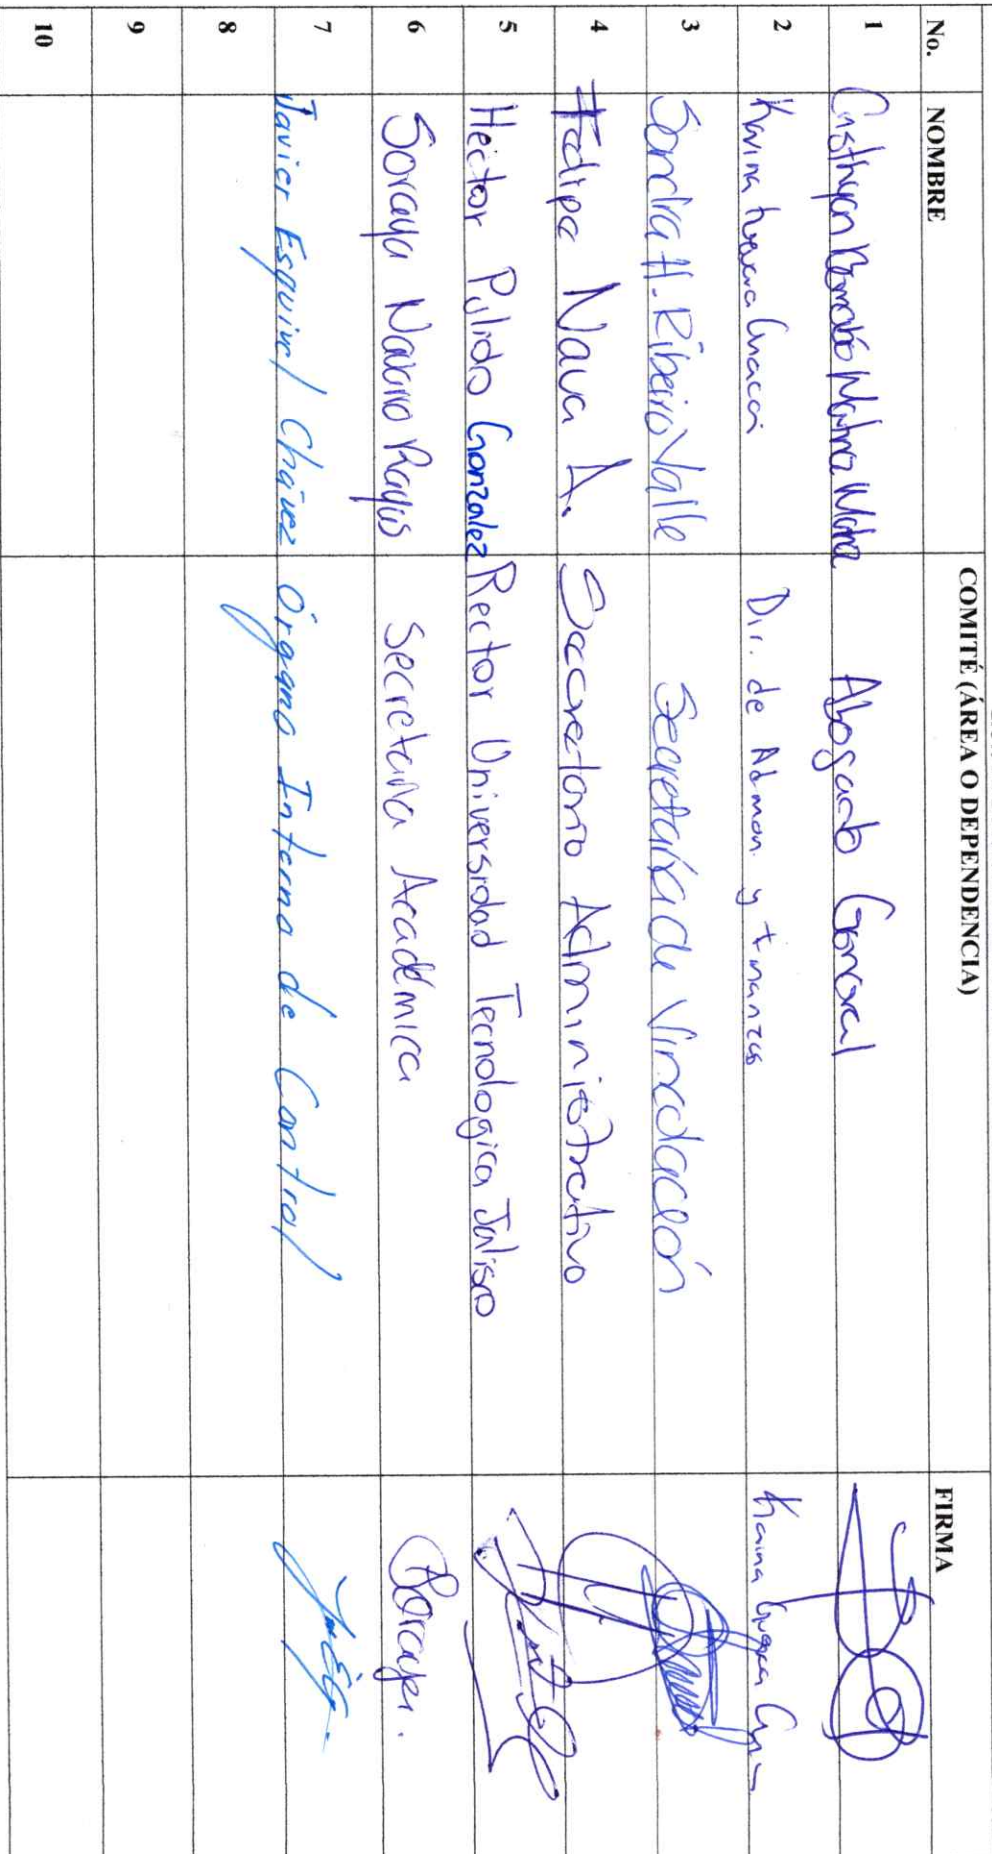 No. NOMBRE COMITÉ (ÁREA O DEPENDENCIA) FIRMA
1 Abogado General
2 Karina Guevara Dir. de Admon. y Finanzas Karina
3 Sandra H. Ribeiro Valle Secretaría de Vinculación
4 Felipe Nava A. Secretario Administrativo
5 Hector Pulido Gonzalez Rector Universidad Tecnologica Jalisco
6 Soraya Navarro Rayas Secretaria Académica Soraya.
7 Javier Esquivel Chávez Órgano Interno de Control
8
9
10